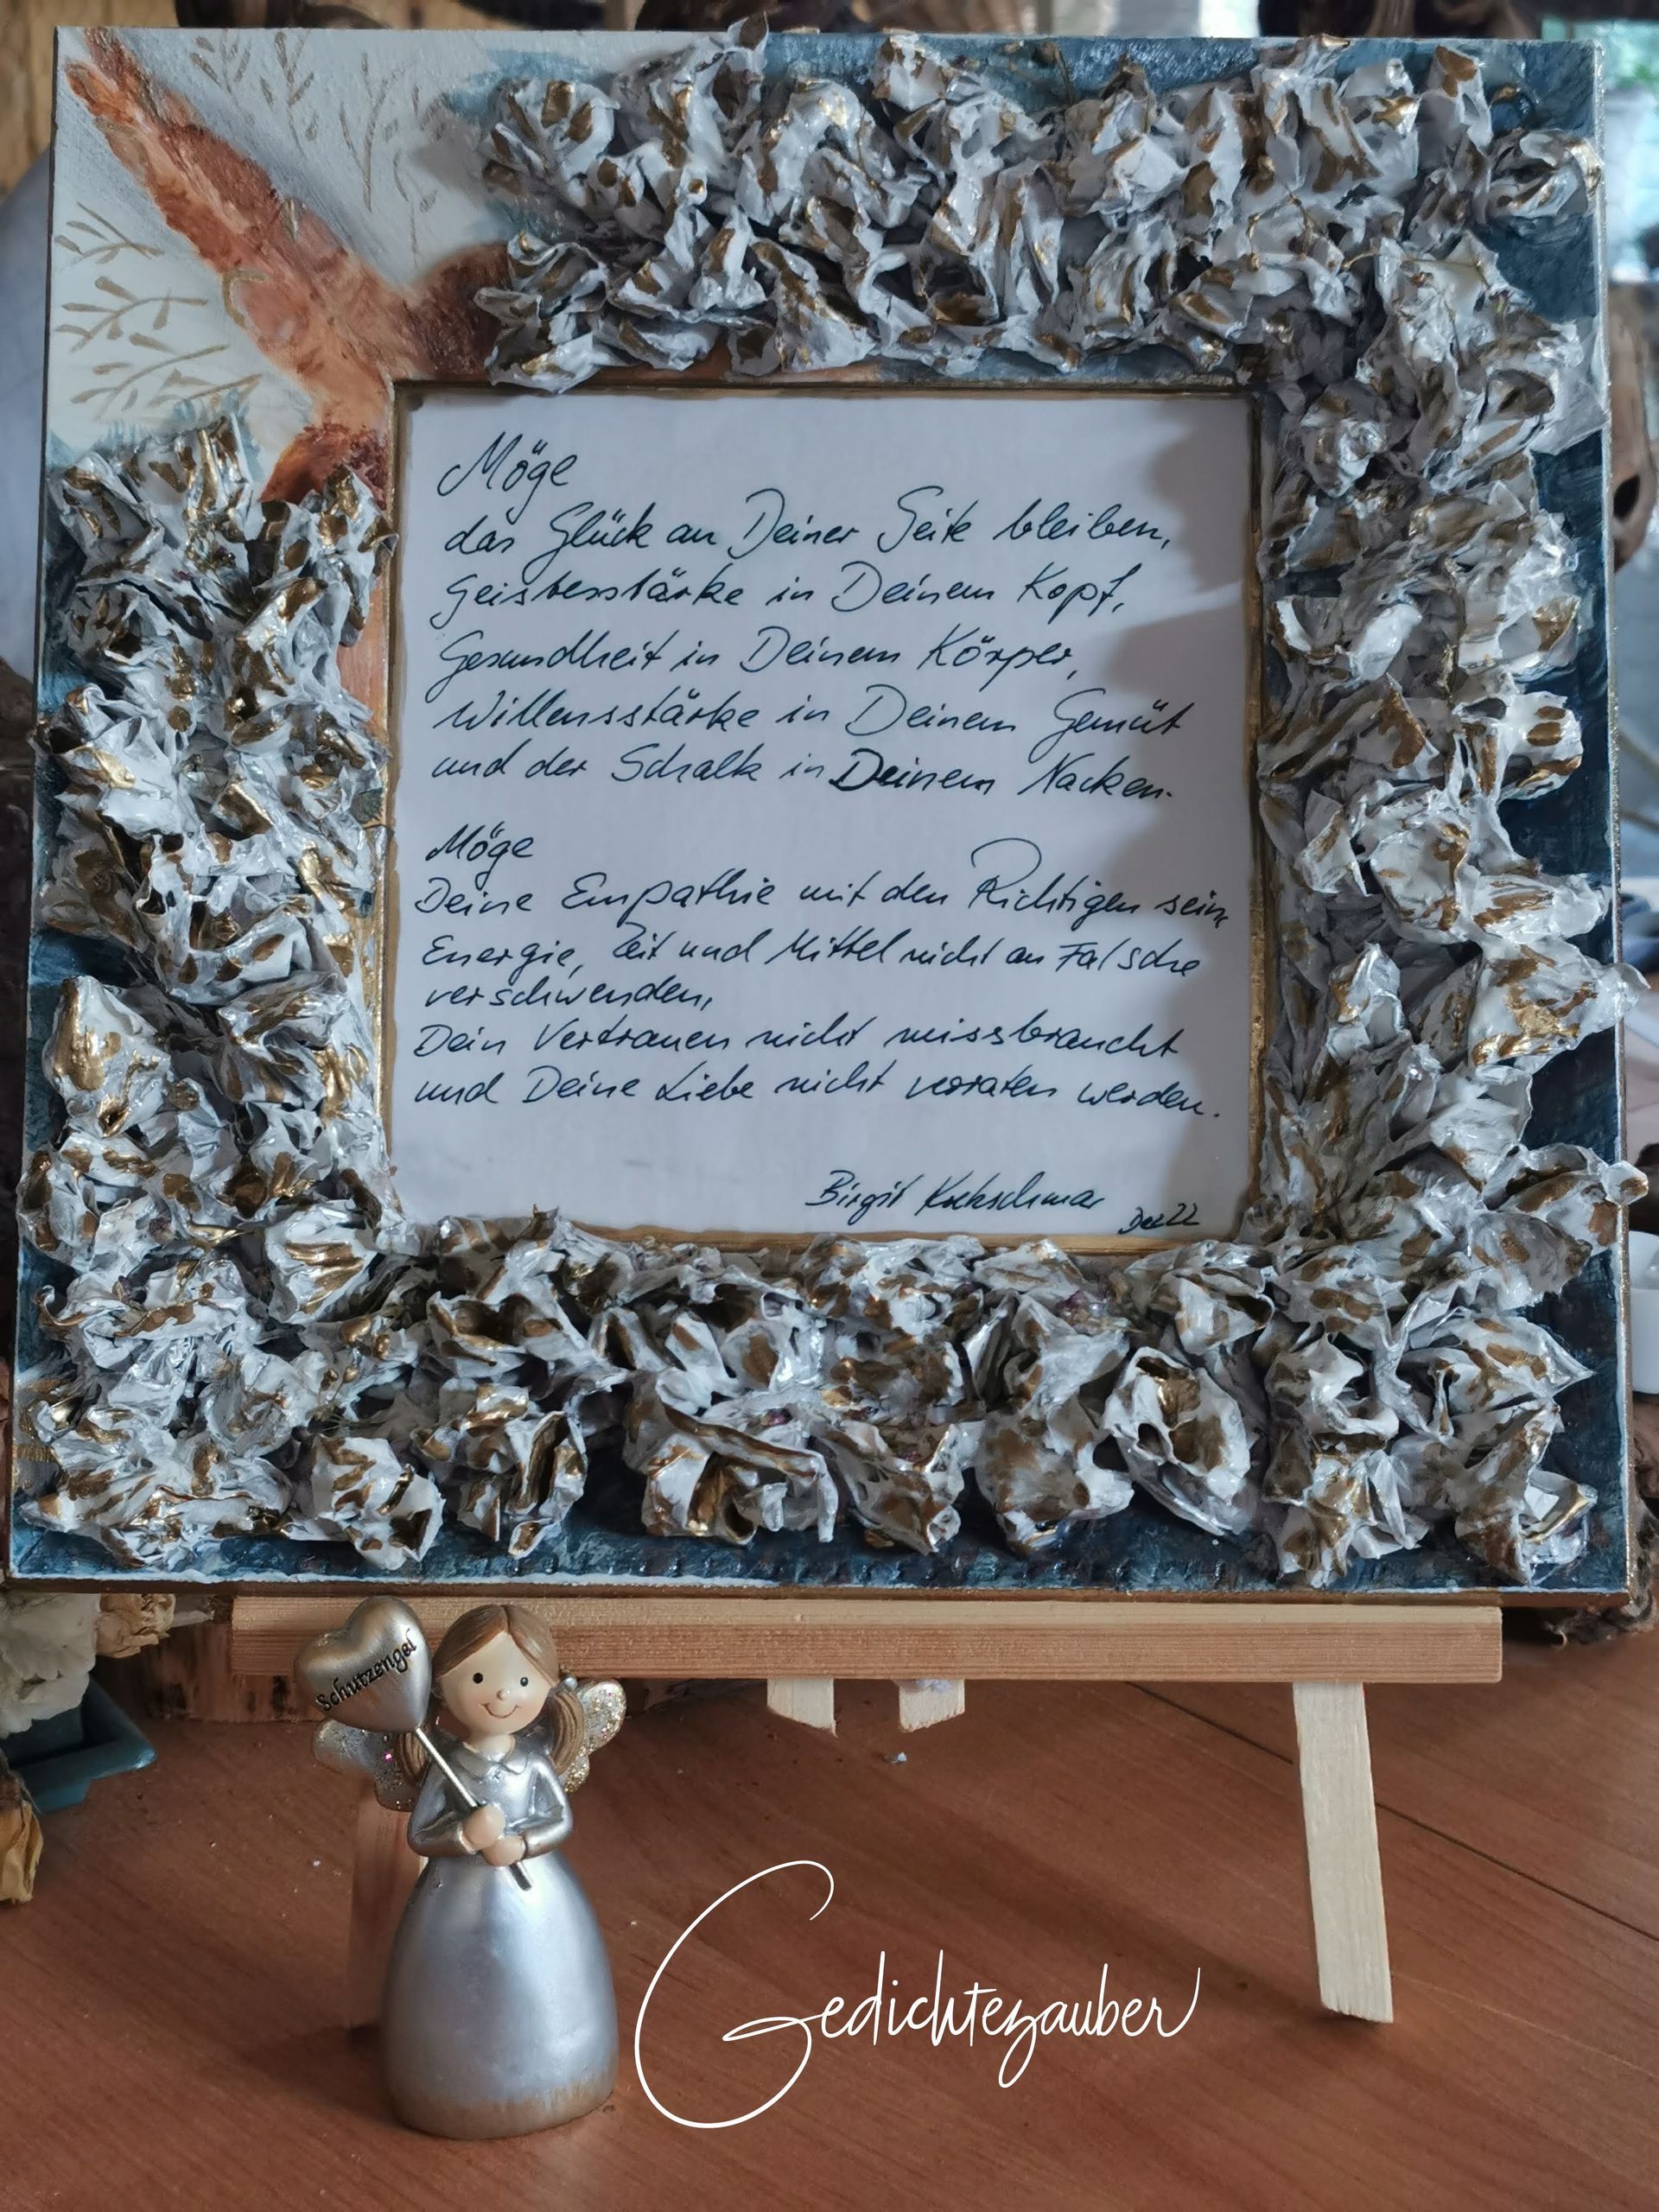 Möge
das Glück an Deiner Seite bleiben,
Geistesstärke in Deinem Kopf,
Gesundheit in Deinem Körper,
Willensstärke in Deinem Gemüt
und der Schalk in Deinem Nacken.
Möge
Deine Empathie mit den Richtigen sein,
Energie, Zeit und Mittel nicht an Falsche
verschwenden,
Dein Vertrauen nicht missbraucht
und Deine Liebe nicht verraten werden.
Birgit
Dez 22
Schutzengel
Gedichtezauber